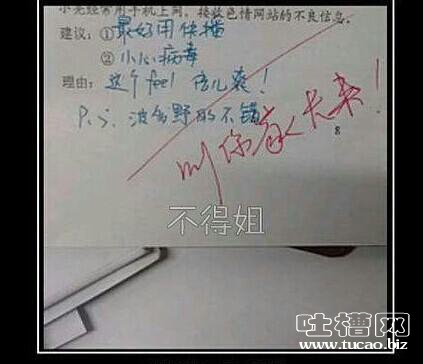 小亮经常用手机上网，接收色情网站的不良信息。
建议：①最好用快播
②小心病毒
理由：这个feel 倍儿爽！
P.S. 波多野的不错
叫你家长来！
8
不得姐
吐槽网
www.tucao.biz